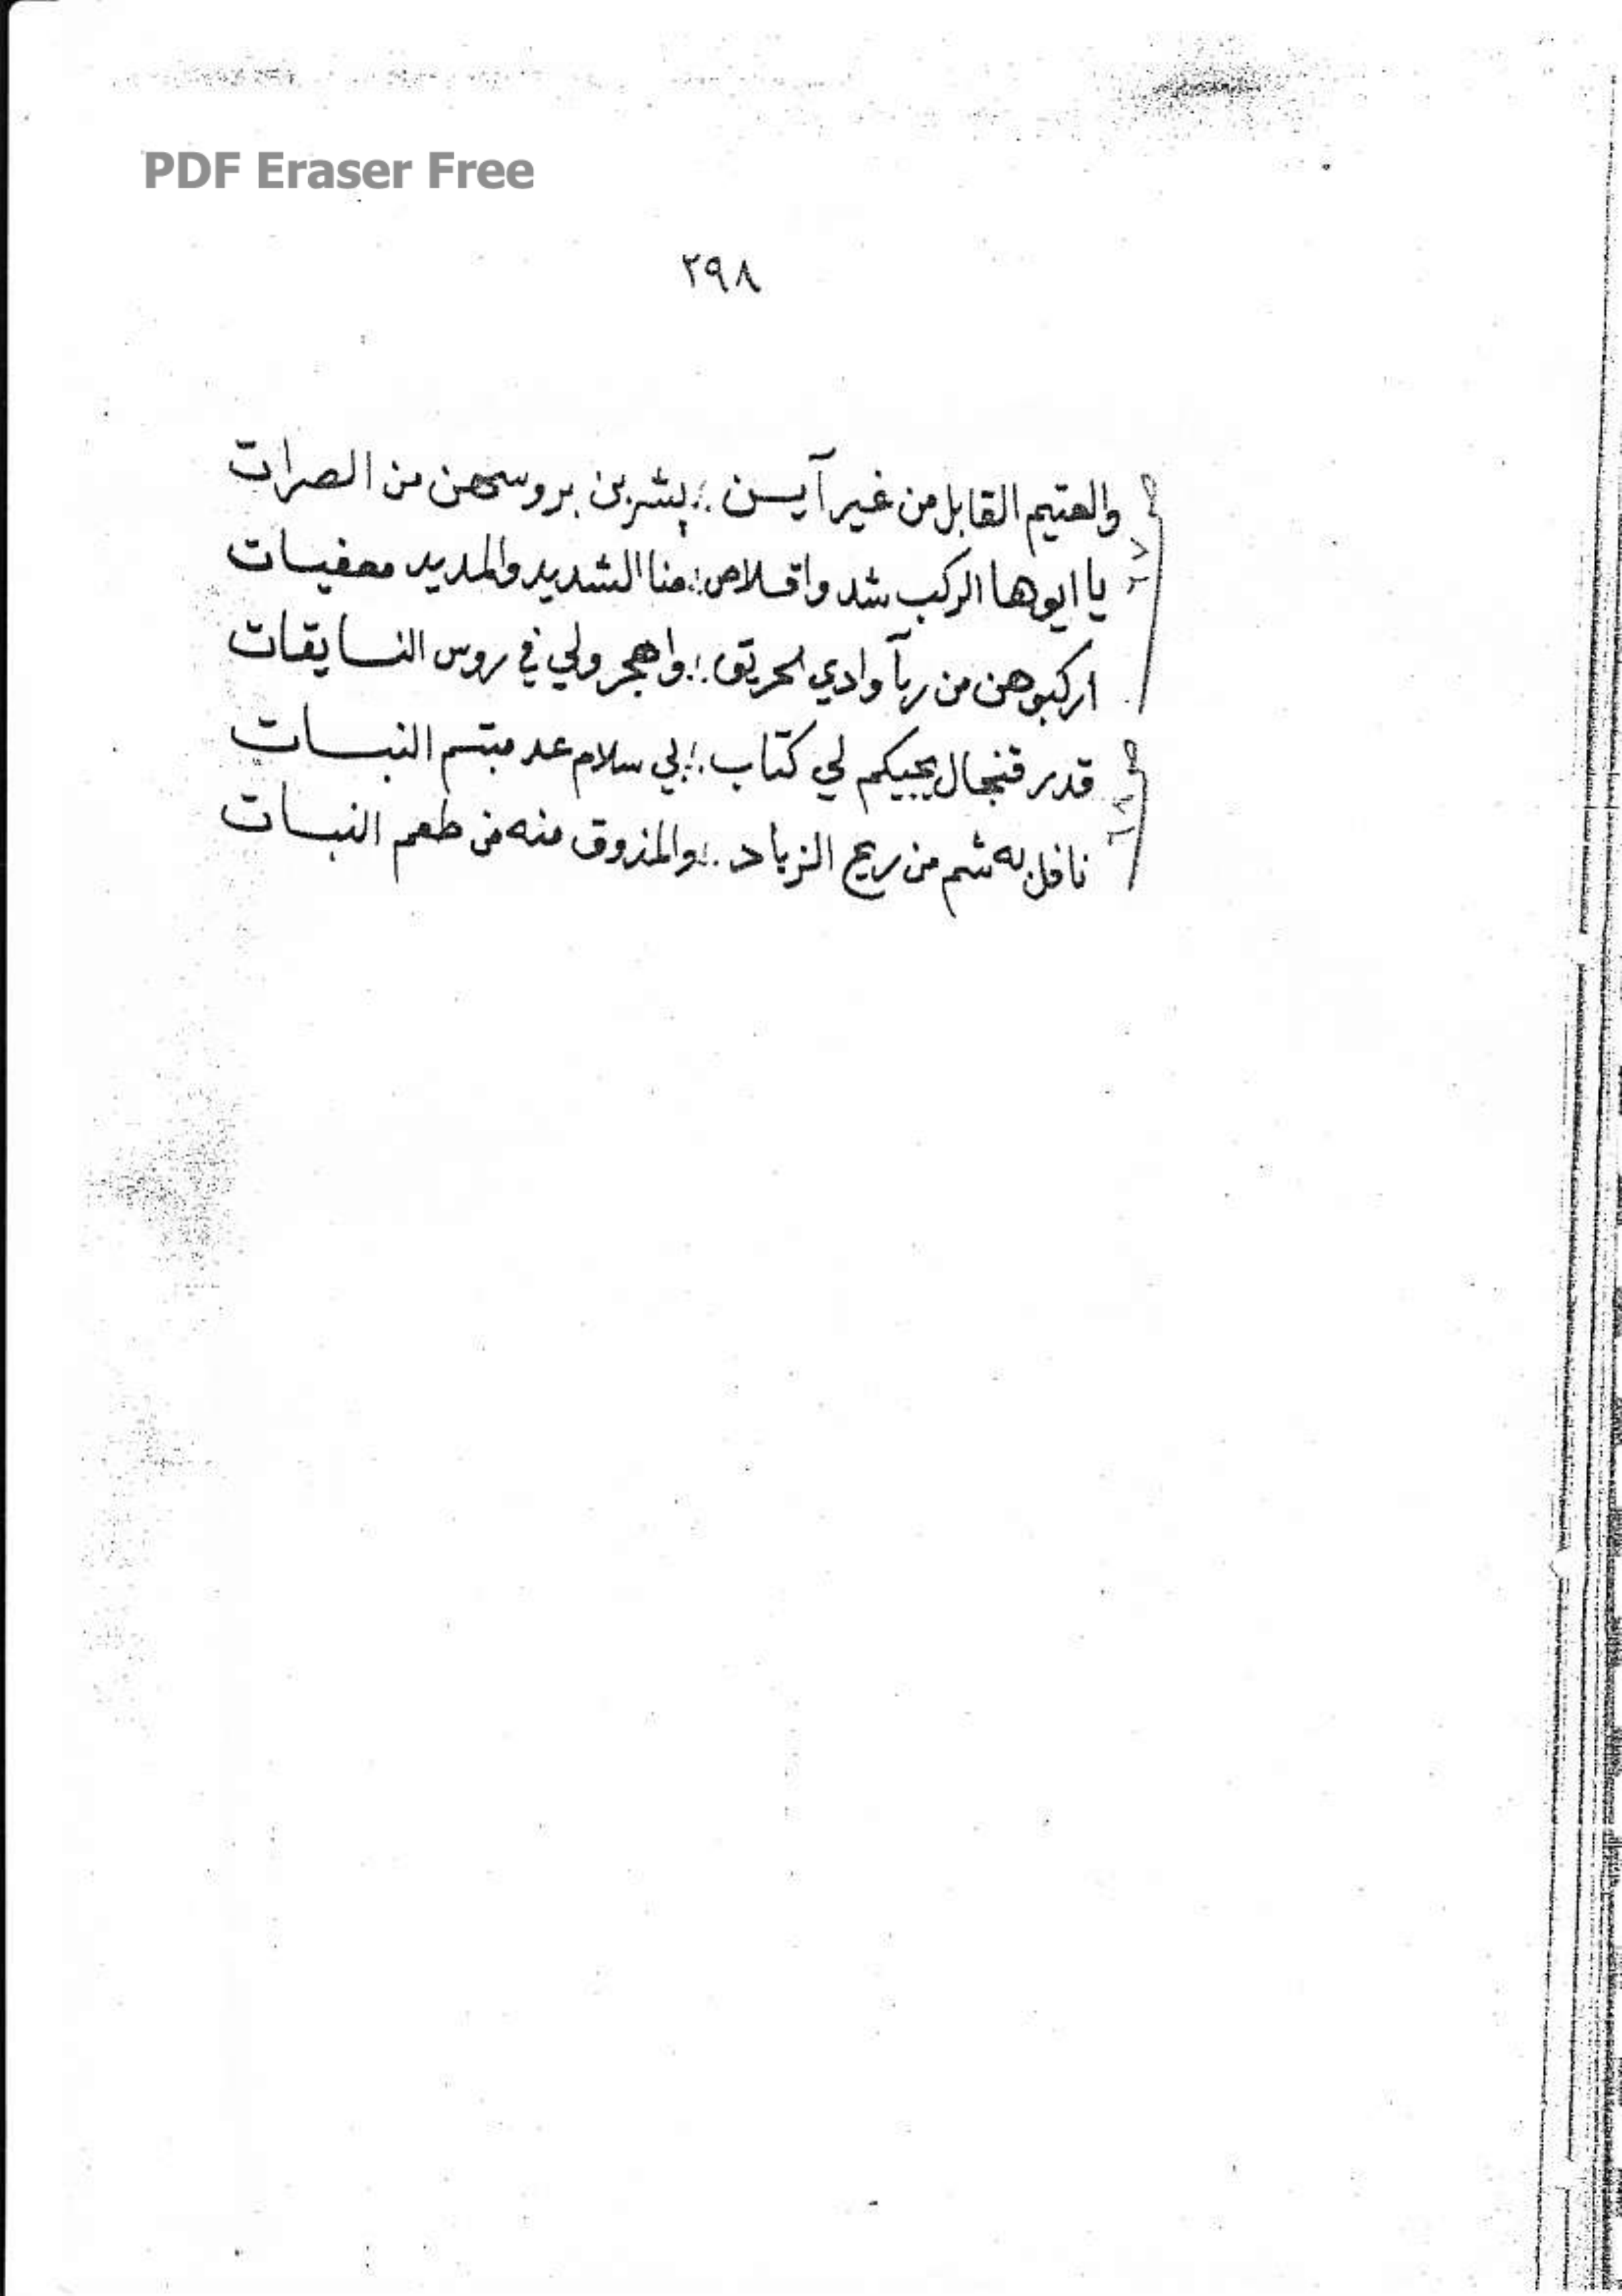 PDF Eraser Free
٢٩٨
والعتيم القابل من غير آيسن .؛. يشربن بروسهن من الصرات
يا ايوها الركب شد واقلاص .؛. منا الشديد والمديد معفيات
اركبوهن من ربآ وادي الحريق .؛. واهجر ولي في روس النسايقات
قدر فنجال يجيكم لي كتاب .؛. لي سلام عد مبتسم النبات
نافل به شم من ريح الزباد .؛. والمذوق منه من طعم النبات